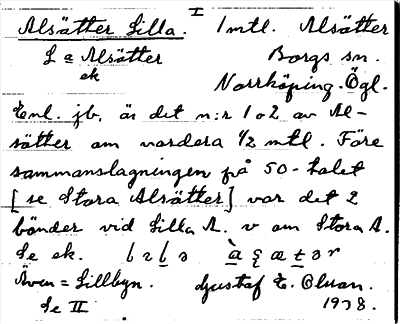 I
Alsätter Lilla. 1 mtl. Alsätter
L = Alsätter Borgs sn.
ek Norrköping. Ögl.
Enl. jb. är det n:r 1 o 2 av Al-
sätter om vardera 1/2 mtl. Före
sammanslagningen på 50-talet
[se Stora Alsätter] var det 2
bönder vid Lilla A. v om Stora A.
Se ek.
Även = Lillbyn. Gustaf E. Olsson.
Se II 1938.